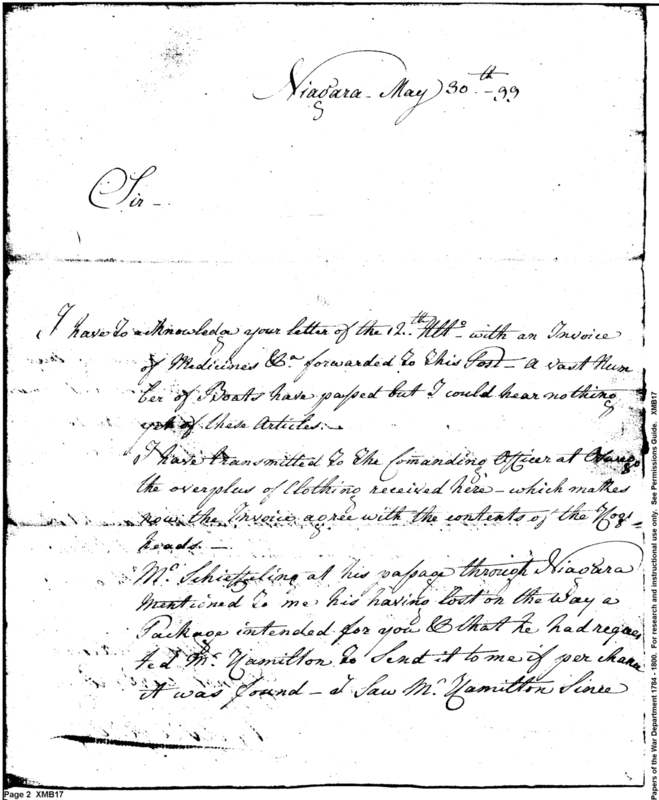 Niagara - May 30th - 99
Sir -
I have to acknowledge your letter of the 12th Ulto - with an Invoice
of Medicines &a forwarded to this Post - A vast Num
ber of Boats have passed but I could hear nothing
yet of these Articles. -
I have transmitted to the Comanding Officer at Oswego
the overplus of Clothing received here - which makes
now the Invoice agree with the contents of the Hogs=
heads. -
Mr at his passage through Niagara
mentioned to me his having lost on the way a
Package intended for you & that he had reques
ted Mr Hamilton to Send it to me if per chance
it was found - I Saw Mr Hamilton Since
Page 2 XMB17
Papers of the War Department 1784 - 1800. For research and instructional use only. See Permissions Guide. XMB17